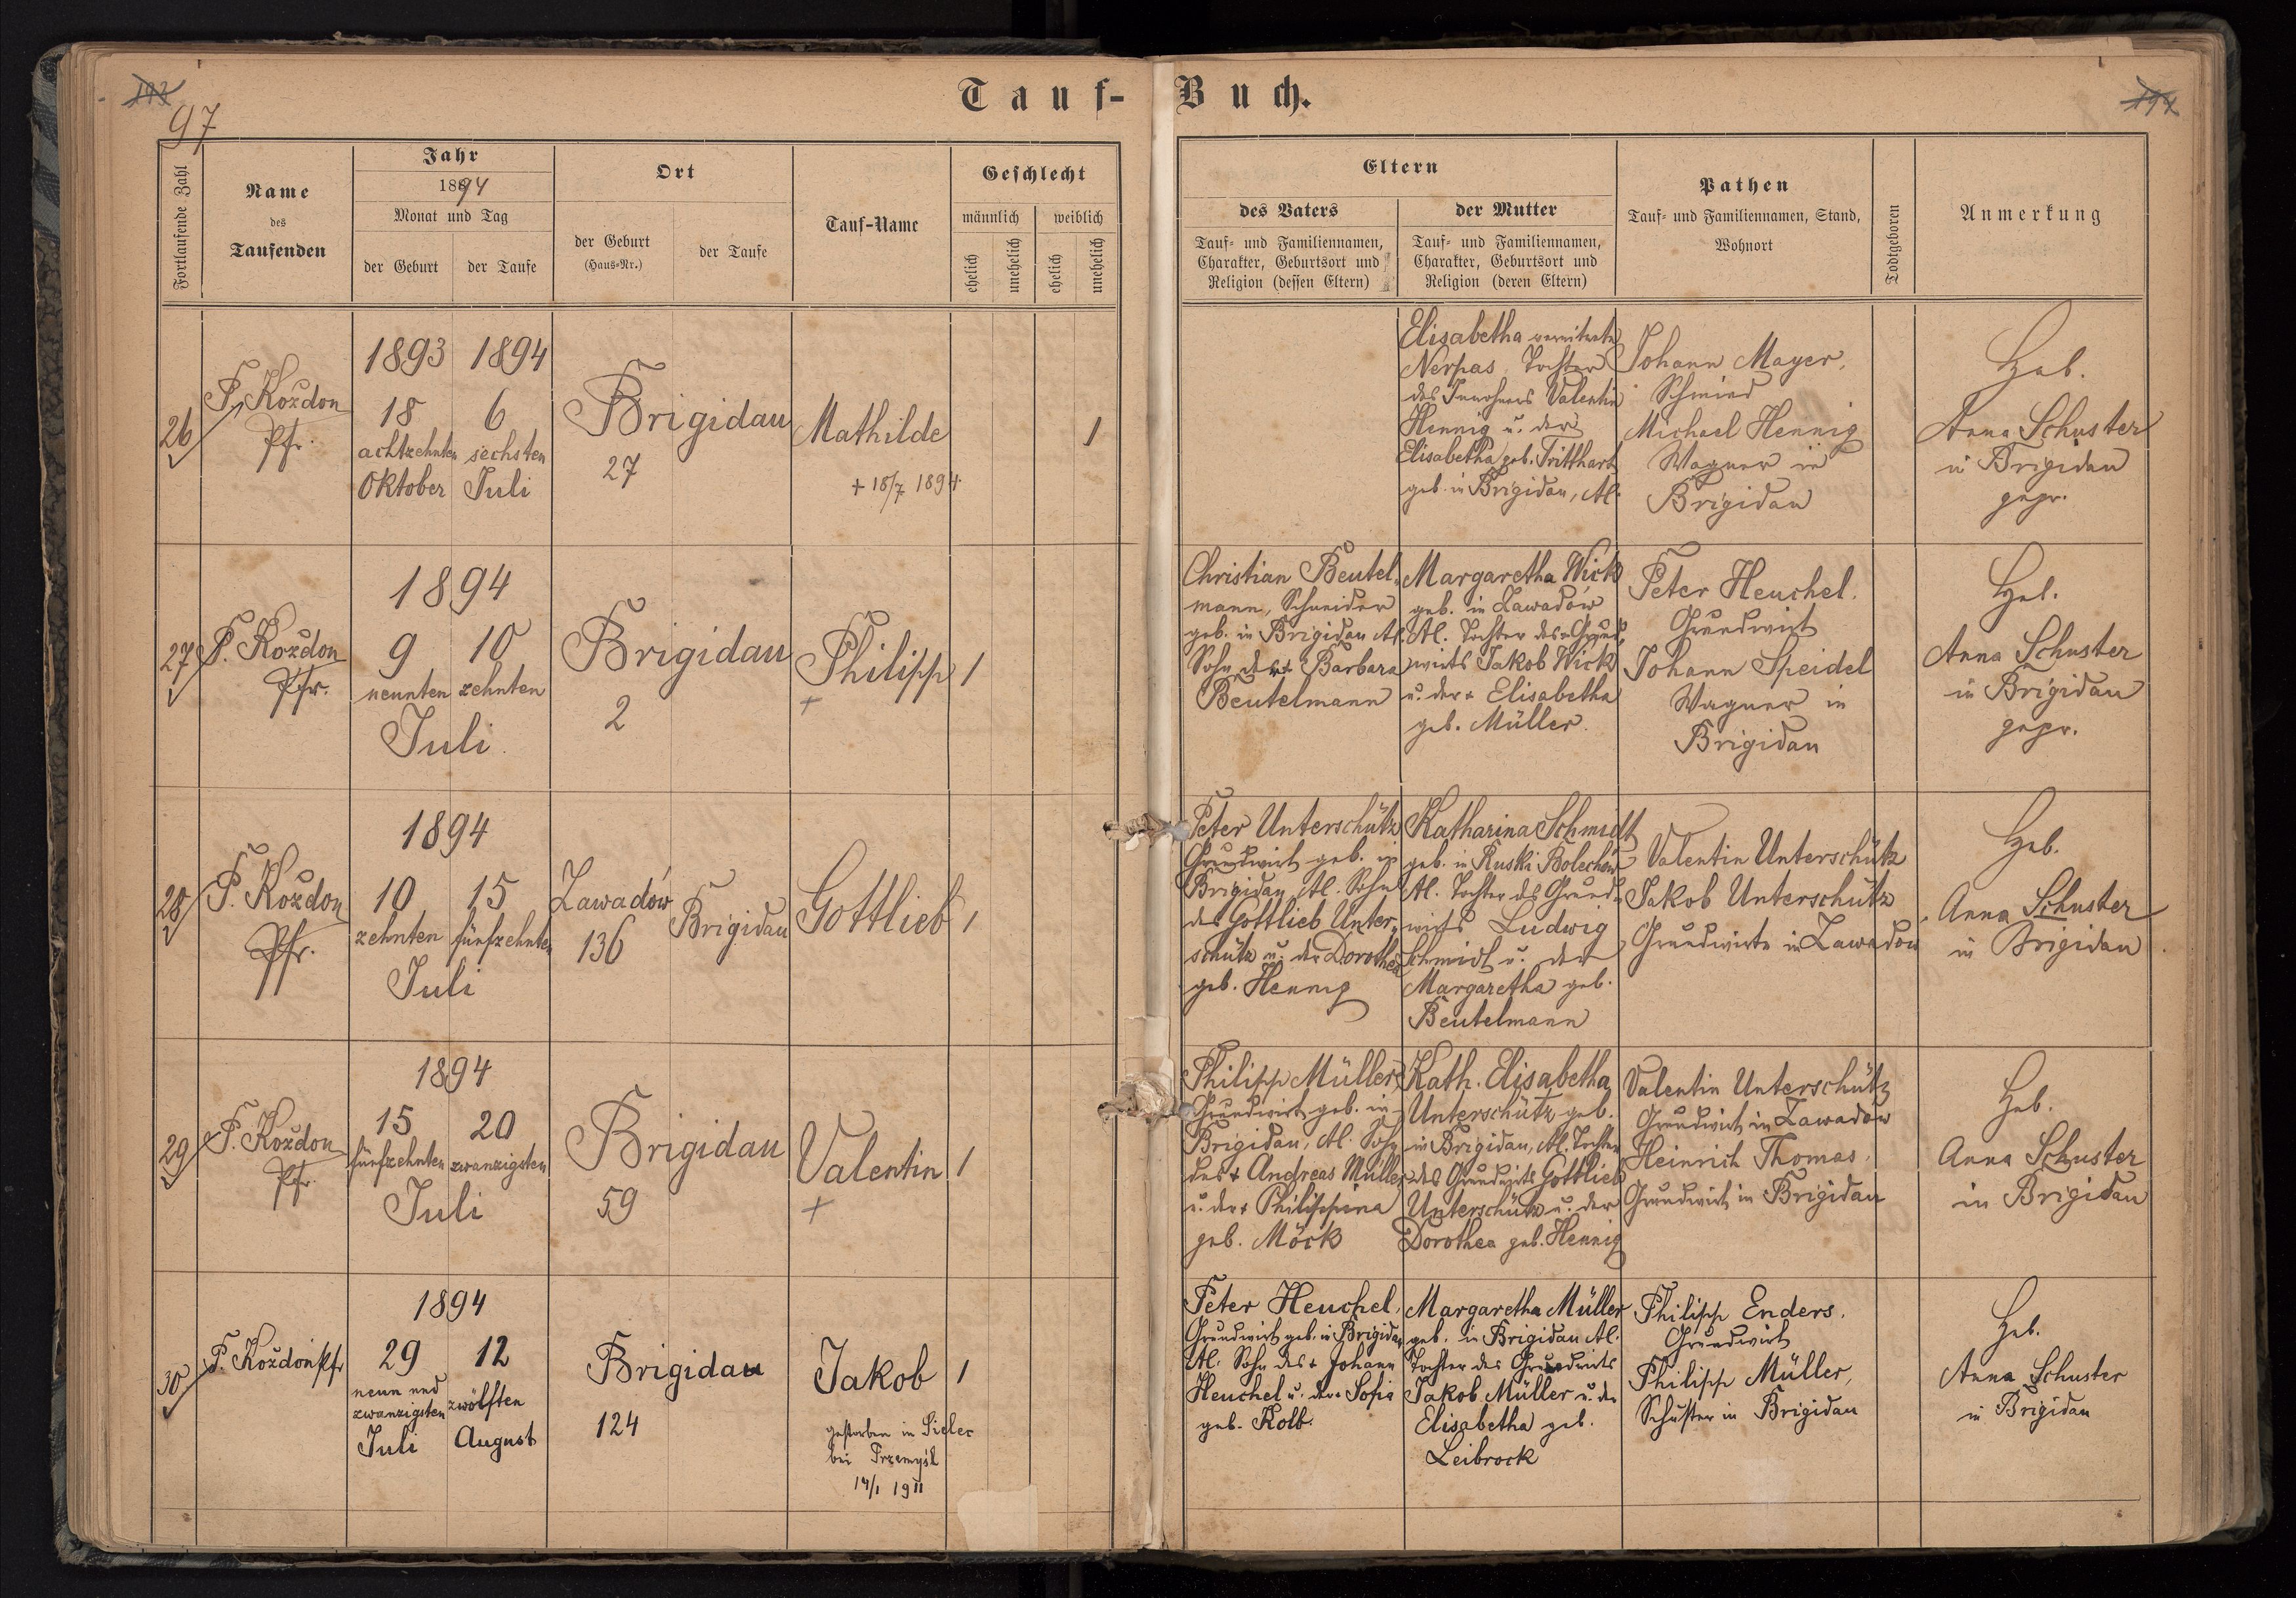 193
97
Tauf-Buch.
194
Fortlaufende Zahl
Name
des
Taufenden
Jahr
1894
Monat und Tag
der Geburt
der Taufe
Ort
der Geburt
(Haus-Nr.)
der Taufe
Tauf-Name
Geschlecht
männlich
weiblich
ehelich
unehelich
ehelich
unehelich
Eltern
des Vaters
Tauf- und Familiennamen,
Charakter, Geburtsort und
Religion (dessen Eltern)
der Mutter
Tauf- und Familiennamen,
Charakter, Geburtsort und
Religion (deren Eltern)
Pathen
Tauf- und Familiennamen, Stand,
Wohnort
Todtgeboren
Anmerkung
26
P. Koždon
Pfr.
1893
18
achtzehnten
Oktober
1894
6
sechsten
Juli
Brigidau
27
Mathilde
+ 18/7 1894
1
Elisabetha
Nerpas, Tochter
des Inwohners Valentin
Hennig u. der
Elisabetha geb. Tritthart
geb. in Brigidau, Al.
Johann Mayer,
Schmied
Michael Hennig
Wagner in
Brigidau
Heb.
Anna Schuster
in Brigidau
gepr.
27
P. Koždon
Pfr.
1894
9
neunten
10
zehnten
Juli.
Brigidau
2
Philipp
+
1
Christian Beutel-
mann, Schneider
geb. in Brigidau Al.
Sohn der + Barbara
Beutelmann
Margaretha Wick
geb. in Zawadów
Al. Tochter des + Grund-
wirts Jakob Wick
u. der + Elisabetha
geb. Müller.
Peter Heuchel.
Grundwirt
Johann Speidel
Wagner in
Brigidau
Heb.
Anna Schuster
in Brigidau
gepr.
28
P. Koždon
Pfr.
1894
10
zehnten
15
fünfzehnten
Juli
Zawadów
136
Brigidau
Gottlieb
1
Peter Unterschütz
Grundwirt geb. in
Brigidau Al. Sohn
des Gottlieb Unter-
schütz u. der Dorothea
geb. Hennig
Katharina Schmidt
geb. in Ruski Bolechów
Al. Tochter des Grund-
wirts Ludwig
Schmidt u. der
Margaretha geb.
Beutelmann
Valentin Unterschütz
Jakob Unterschütz
Grundwirte in Zawadow
Heb.
Anna Schuster
in Brigidau
29
P. Koždon
Pfr.
1894
15
fünfzehnten
20
zwanzigsten
Juli
Brigidau
59
Valentin
+
1
Philipp Müller,
Grundwirt geb. in
Brigidau, Al. Sohn
des + Andreas Müller
u. der + Philippina
geb. Möck
Kath. Elisabetha
Unterschütz geb.
in Brigidau, Al. Tochter
des Grundwirts Gottlieb
Unterschütz u. der
Dorothea geb. Hennig
Valentin Unterschütz
Grundwirt in Zawadów
Heinrich Thomas,
Grundwirt in Brigidau
Heb.
Anna Schuster
in Brigidau
30
P. Koždon Pfr
1894
29
neun und
zwanzigsten
Juli
12
zwölften
August
Brigidau
124
Jakob
gestorben in Sielec
bei Przemyśl
14/1 1911
1
Peter Heuchel,
Grundwirt geb. in Brigidau
Al. Sohn des + Johann
Heuchel u. der + Sofia
geb. Kolb.
Margaretha Müller
geb. in Brigidau Al.
Tochter des Grundwirts
Jakob Müller u. der
Elisabetha geb.
Leibrock
Philipp Enders,
Grundwirt
Philipp Müller,
Schuster in Brigidau
Heb.
Anna Schuster
in Brigidau